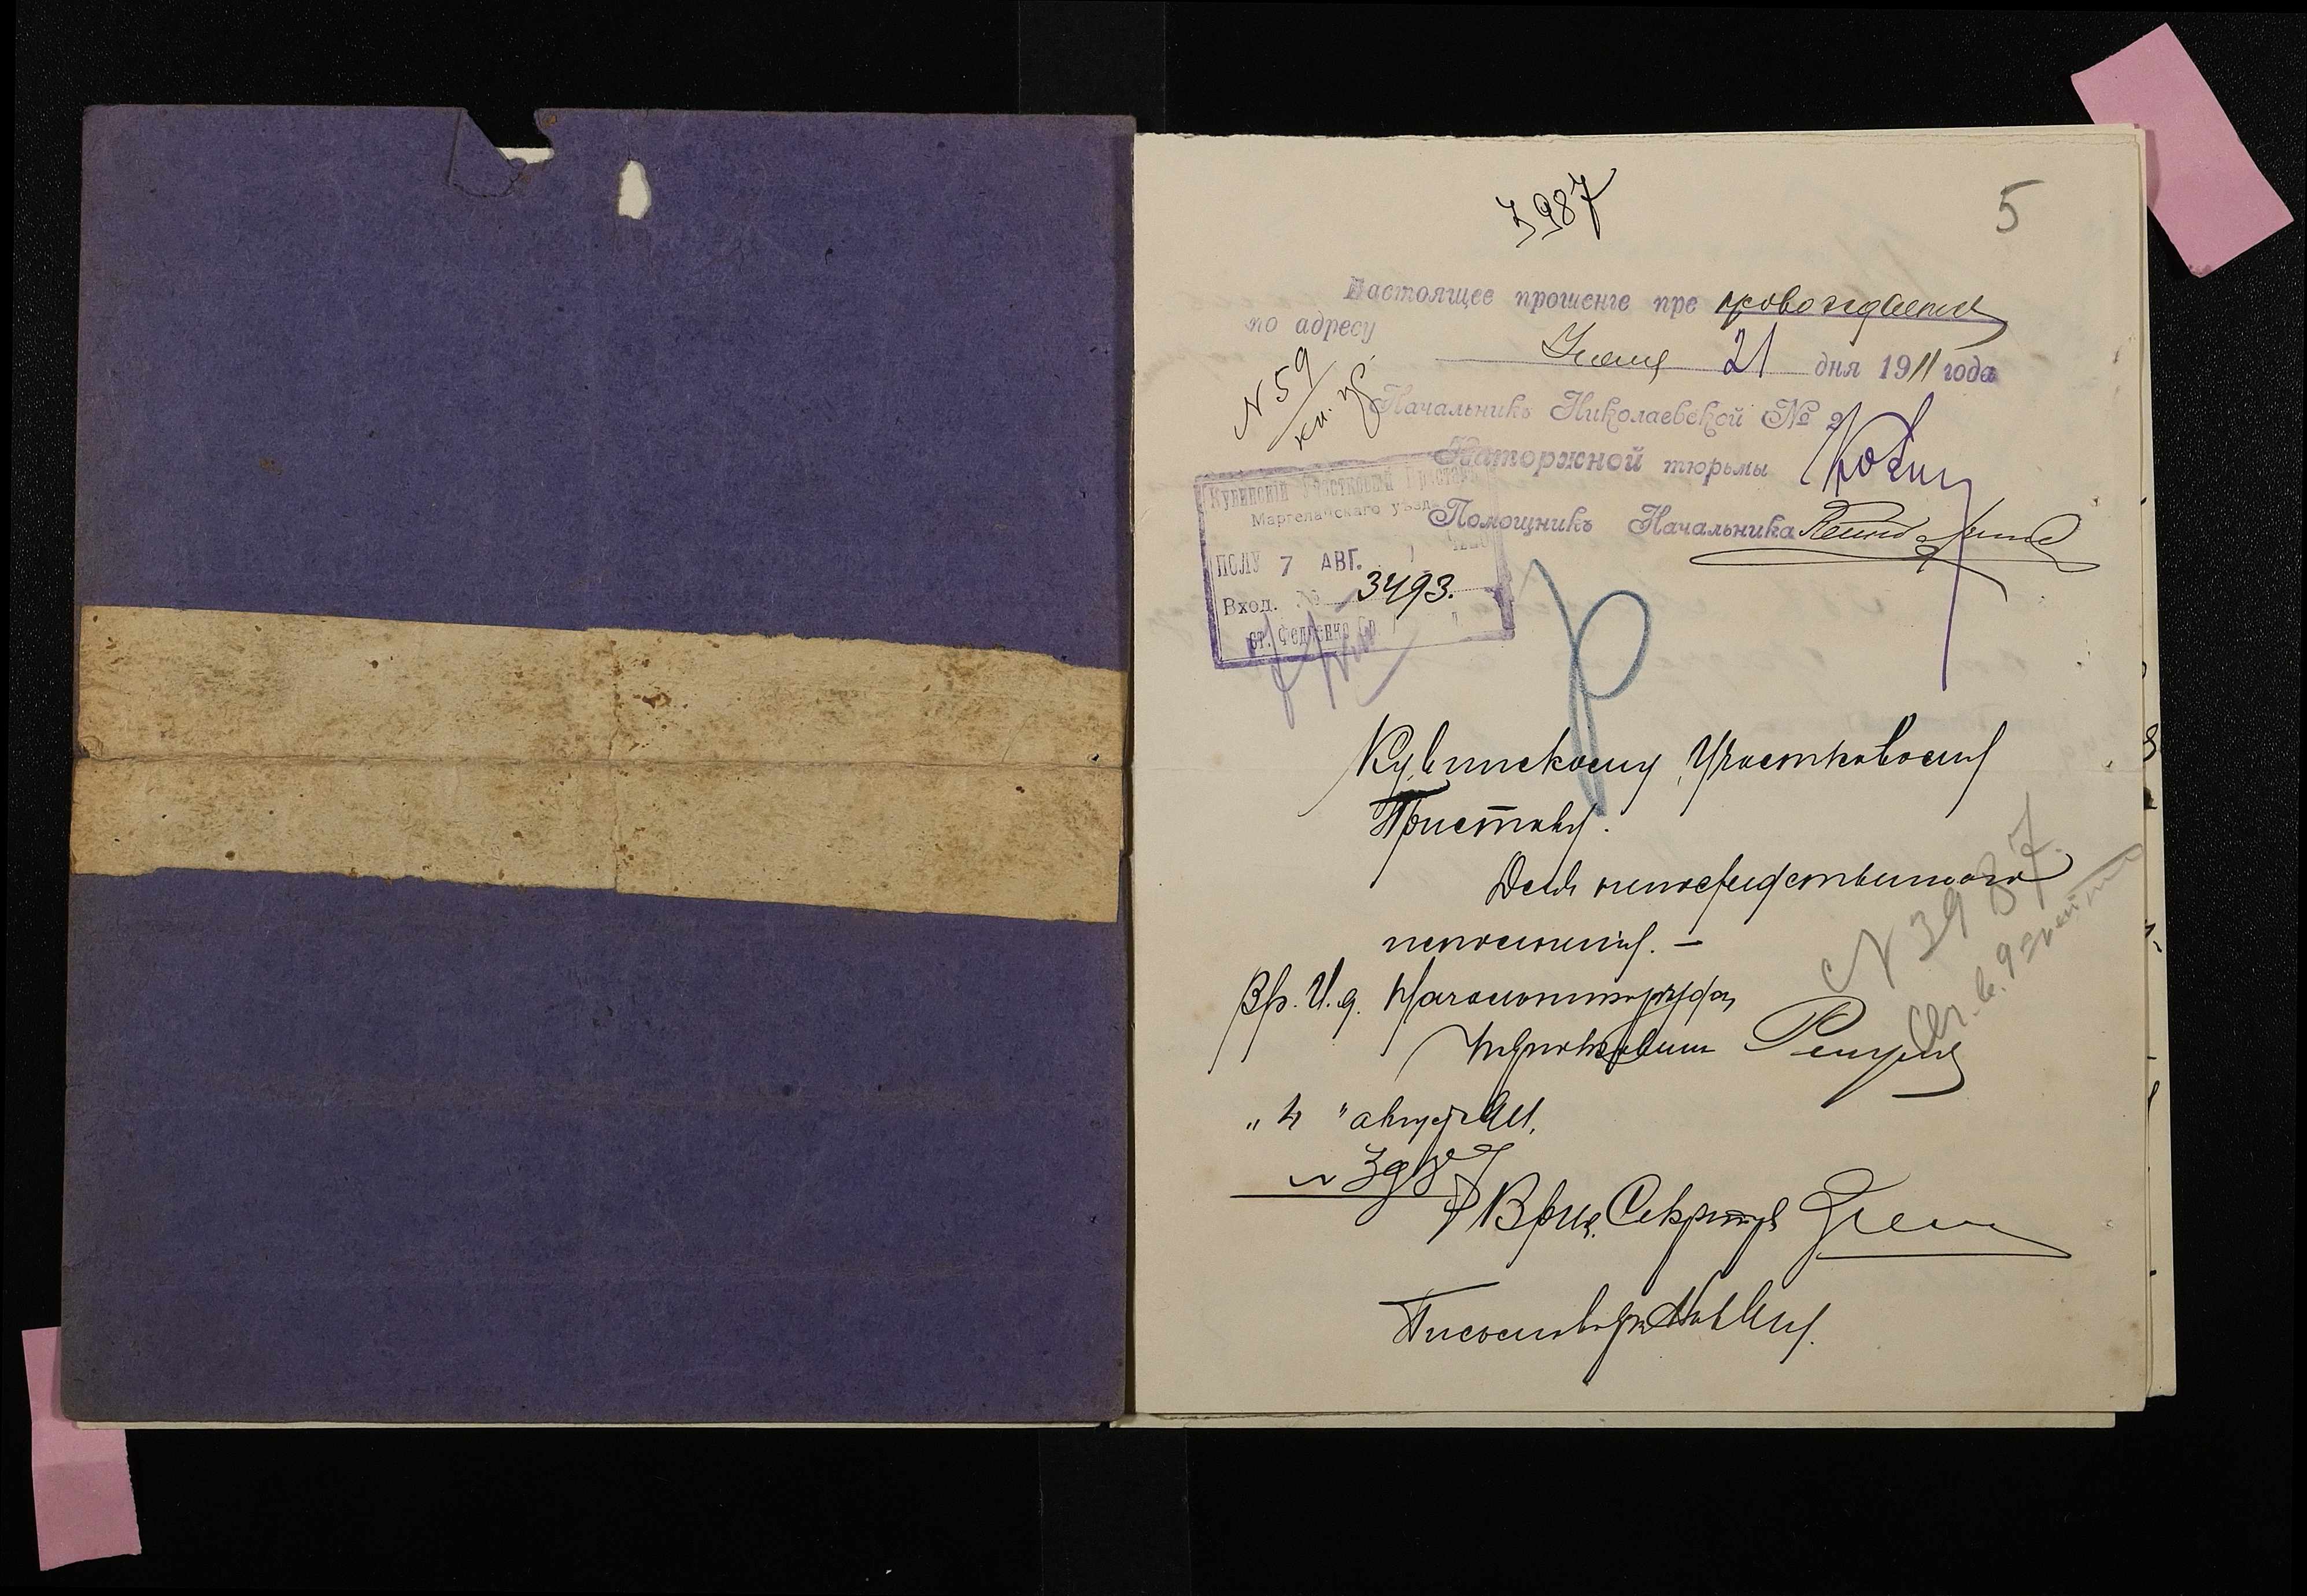 3987
5
Настоящее прошенiе пре провождается
по адресу
Iюля 21 дня 1911 года
N 59
Начальникъ Николаевской № 2
Каторжной тюрьмы
Помощникъ Начальника
Кувинскiй Участковый Приставъ
Маргеланскаго уѣзда
ПОЛУ 7 АВГ.
Вход. № 3493.
ст. Федченко Ср.
Кувинскому Участковому
Приставу.
Для непосредственнаго
исполненiя. —
N 3987
Вр. И. д. Начальника уѣзда
Подполковникъ
"4" августа 1911.
N 3987
Врид. Секретаря
Письмоводитель